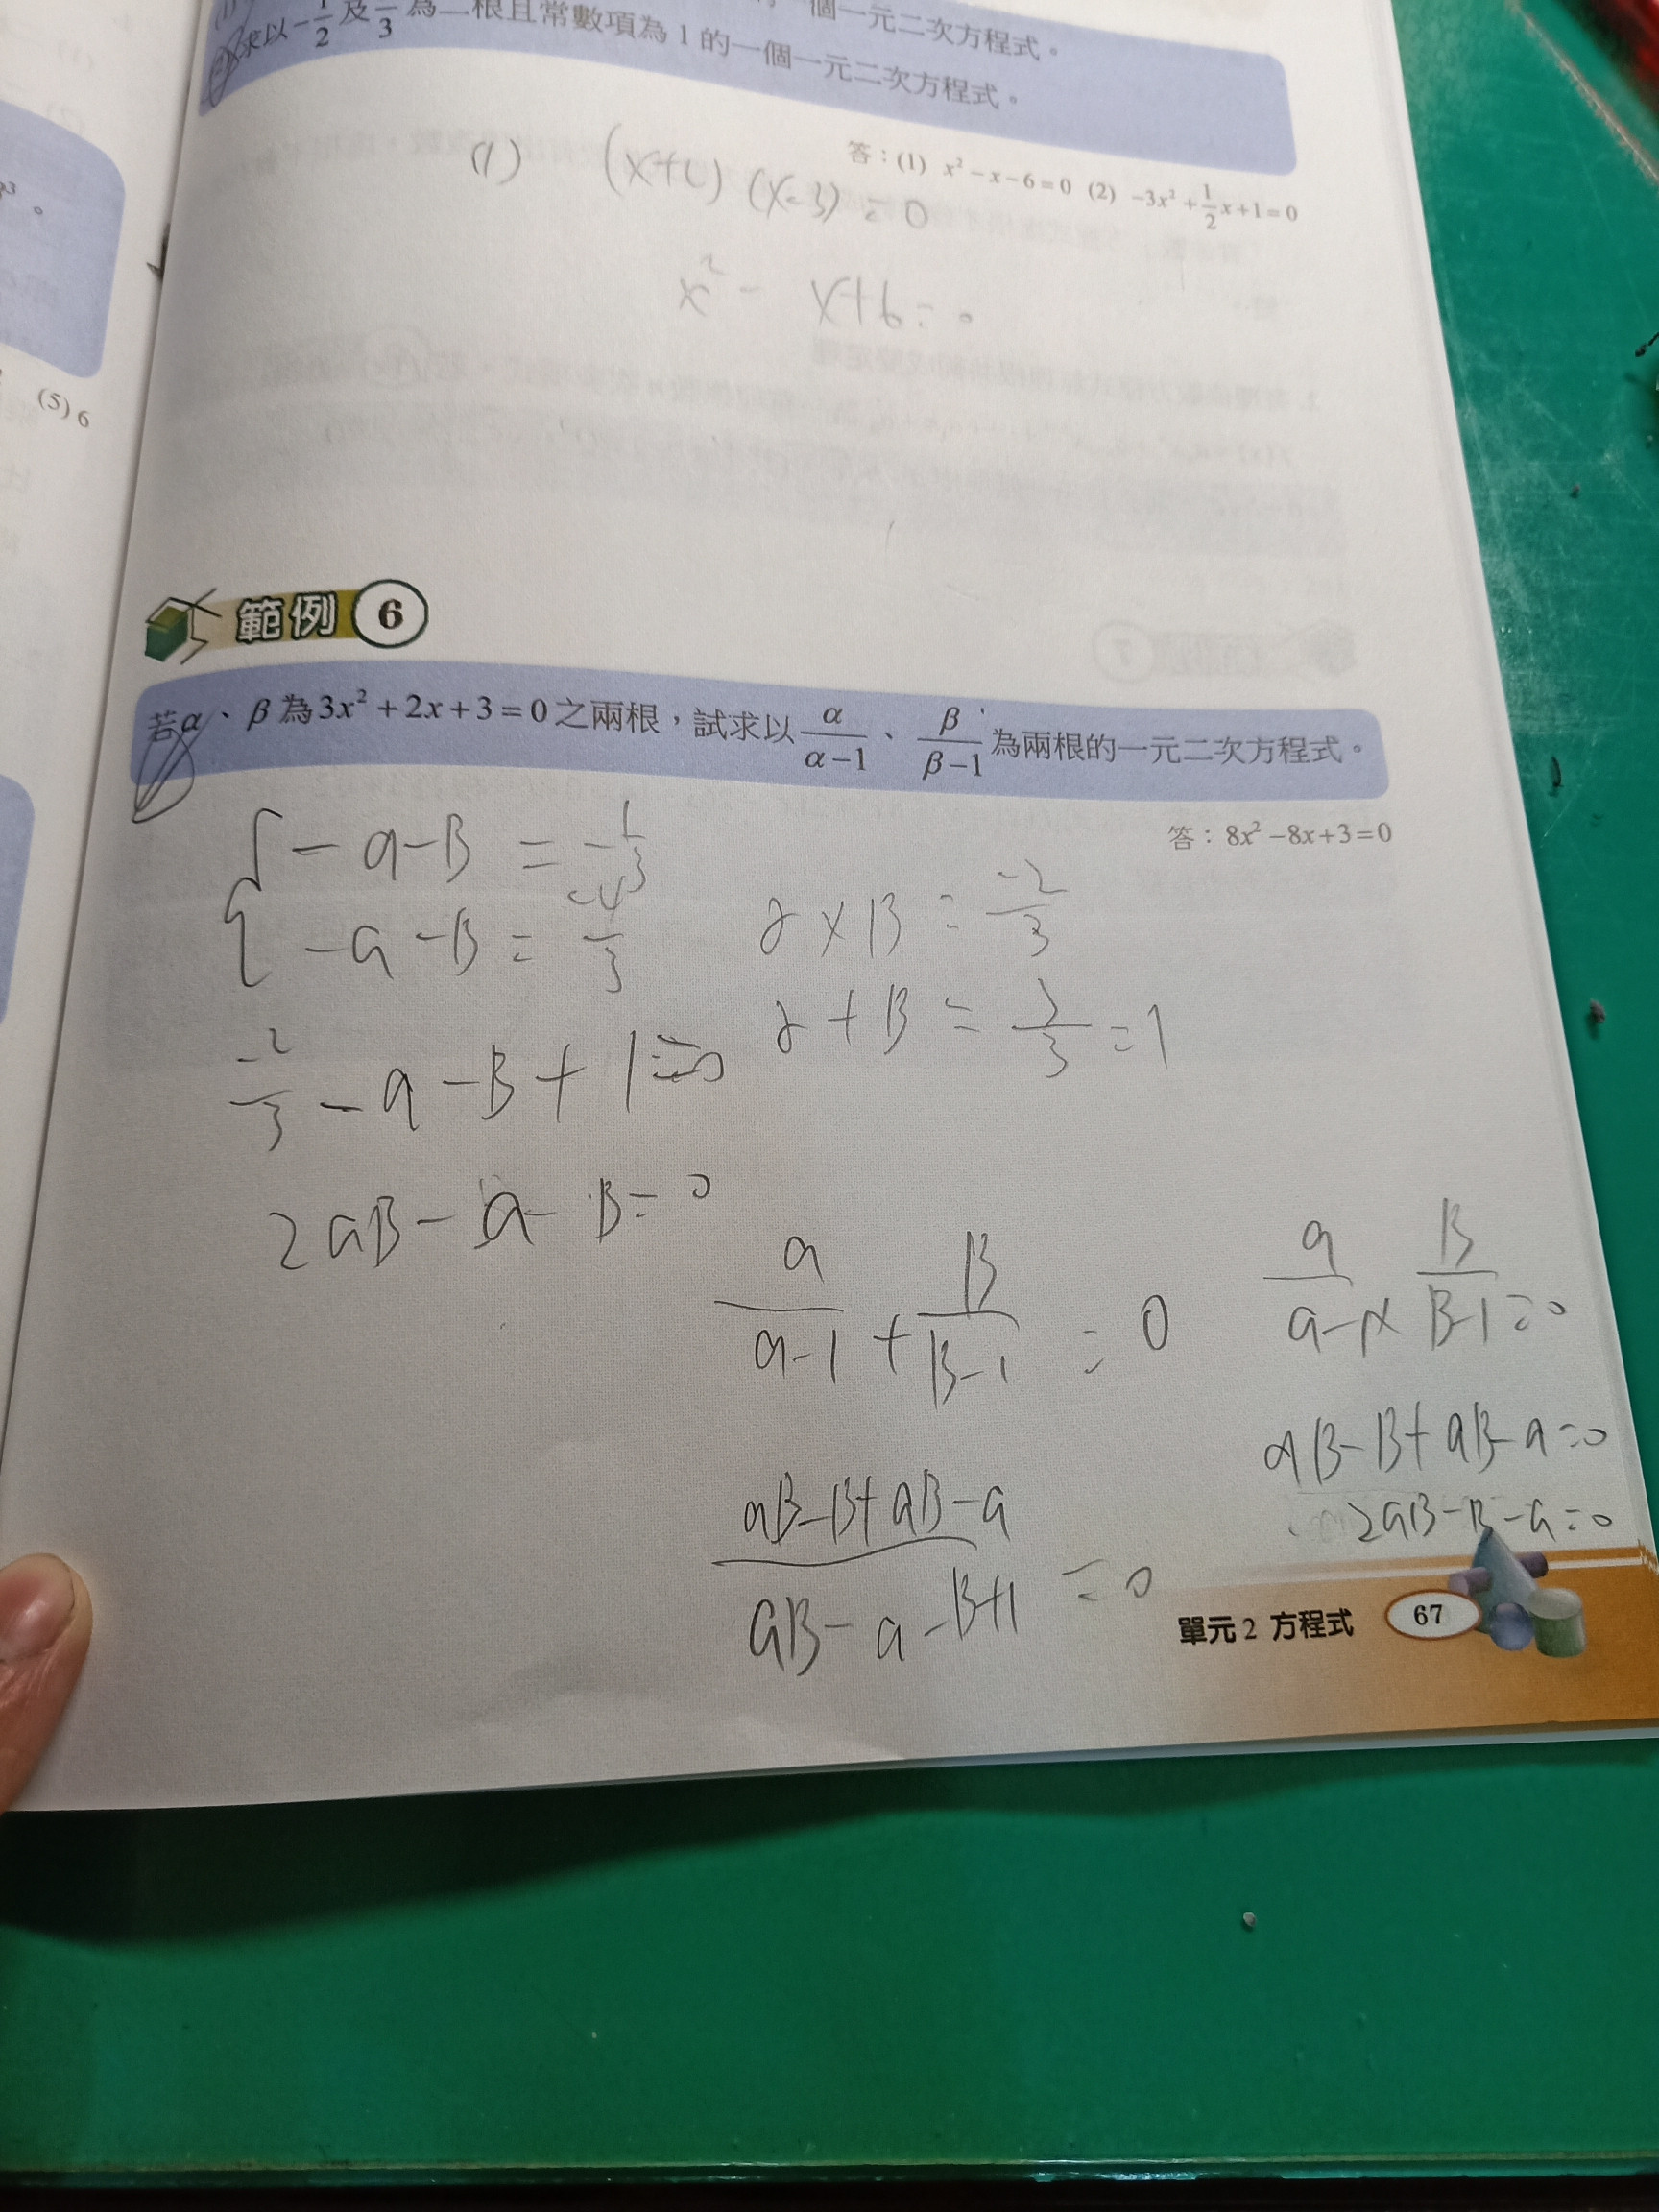 個一元二次方程式。
求以-1/2及 /3為二根且常數項為1的一個一元二次方程式。
答：(1) x²-x-6=0 (2) -3x²+1/2x+1=0
(1) (x+2)(x-3)=0
x²-x+6=0
(5) 6
範例 6
若α、β為3x²+2x+3=0之兩根，試求以α/(α-1)、β/(β-1)為兩根的一元二次方程式。
答：8x²-8x+3=0
-a-B=-1/3
-a-B=-4/3
-2/3-a-B+1=0
2aB-a-B=0
α×B=-2/3
α+B=3/3=1
a/(a-1)+B/(B-1)=0
a/(a-1)×B/(B-1)=0
(aB-B+aB-a)/(aB-a-B+1)=0
aB-B+aB-a=0
2aB-B-a=0
單元2 方程式 67